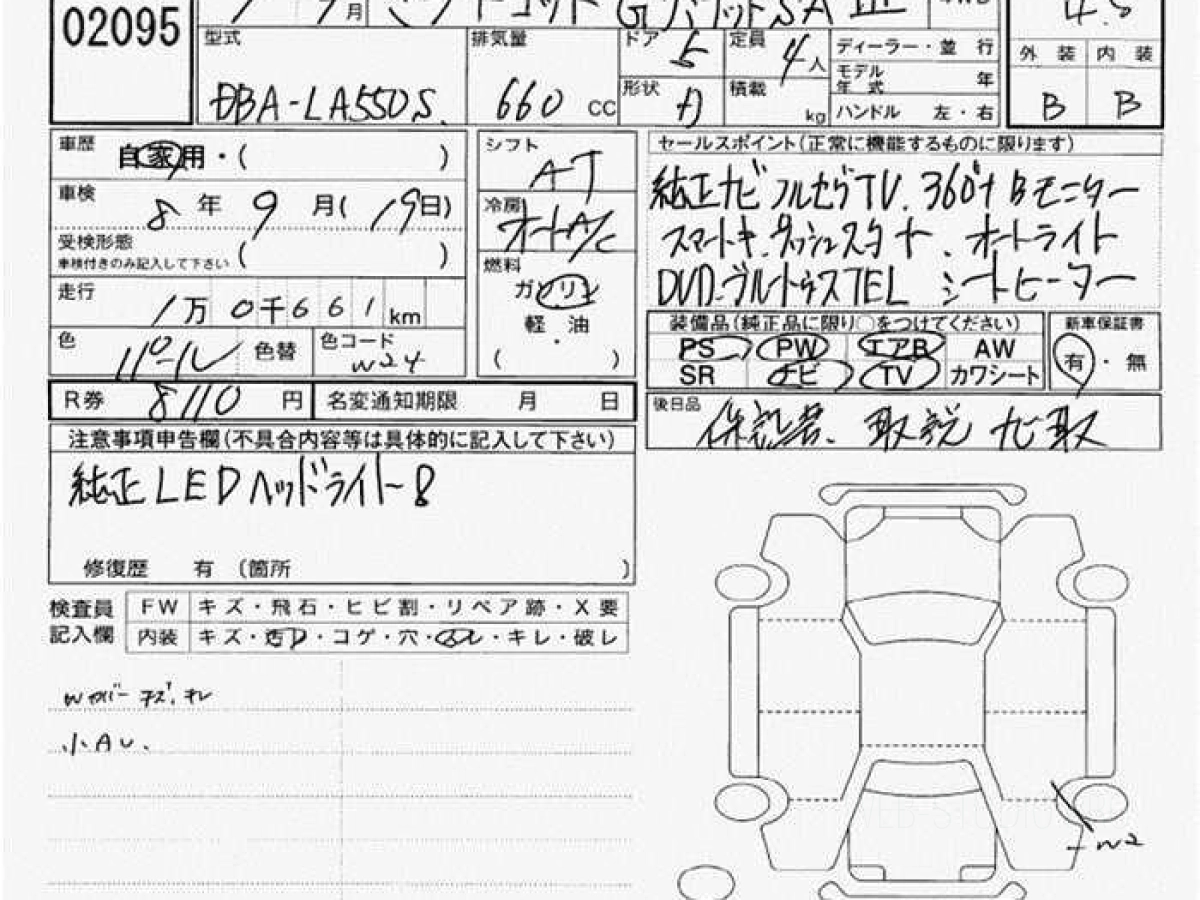 02095
月
GターボットSAⅢ
4.5
型式
DBA-LA550S
排気量
660 CC
ドア
5
定員
4人
形状
積載
kg
ディーラー・並行
モデル年式 年
ハンドル 左・右
外装 内装
B B
車歴
自家用・( )
車検
8年9月(19日)
受検形態
車検付きのみ記入して下さい ( )
走行
1万0千661km
色
パール 色替
色コード
W24
シフト
AT
冷房
オートA/C
燃料
ガソリン
軽・油
( )
セールスポイント(正常に機能するものに限ります)
純正ナビ フルセグTV. 360°
モニター
スマートキ. プッシュスタート. オートライト
DVD. ブルートゥスTEL シートヒーター
装備品(純正品に限り○をつけてください)
PS PW エアB AW
SR ナビ TV カワシート
新車保証書
有・無
R券 8110 円
名変通知期限 月 日
後日品
保証書. 取説 ナビ取
注意事項申告欄(不具合内容等は具体的に記入して下さい)
純正LEDヘッドライト
修復歴 有 (箇所 )
検査員記入欄
FW キズ・飛石・ヒビ割・リペア跡・X要
内装 キズ・コゲ・穴・キレ・破レ
Wカバー キズ.キレ
小AU.
W2